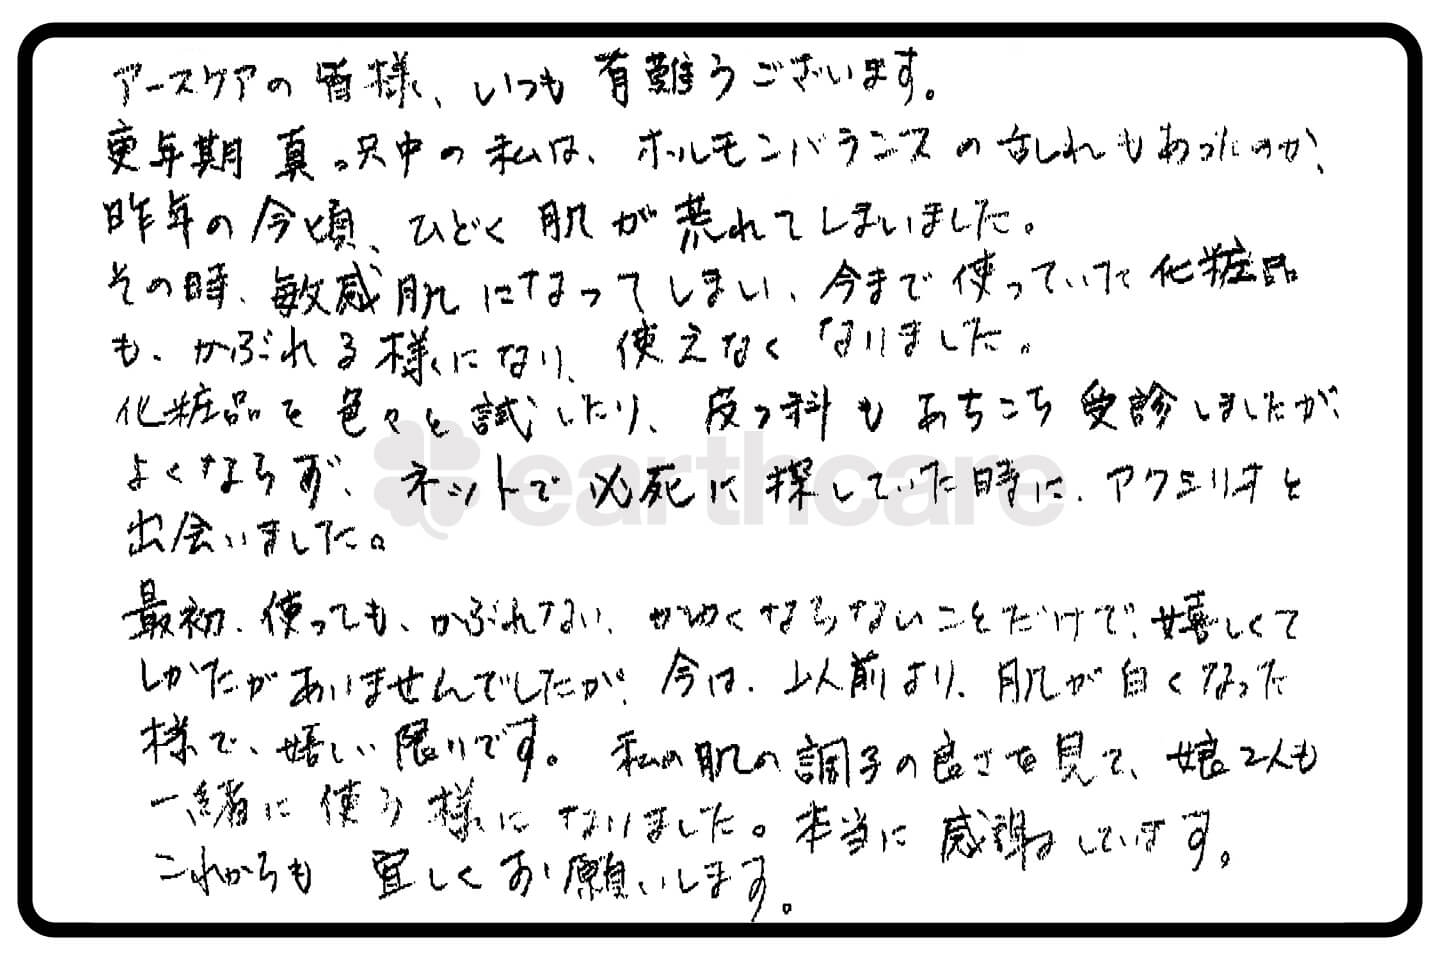 アースケアの皆様、いつも有難うございます。
更年期真っ只中の私は、ホルモンバランスの乱れもあったのか、
昨年の今頃、ひどく肌が荒れてしまいました。
その時、敏感肌になってしまい、今まで使っていた化粧品
も、かぶれる様になり、使えなくなりました。
化粧品を色々と試したり、皮フ科もあちこち受診しましたが、
よくならず、ネットで必死に探していた時に、アクシリオと
出会いました。
earthcare
最初、使っても、かぶれない、かゆくならないことだけで、嬉しくて
しかたがありませんでしたが、今は、以前より、肌が白くなった
様で、嬉しい限りです。私の肌の調子の良さを見て、娘2人も
一緒に使う様になりました。本当に感謝しています。
これからも宜しくお願いします。